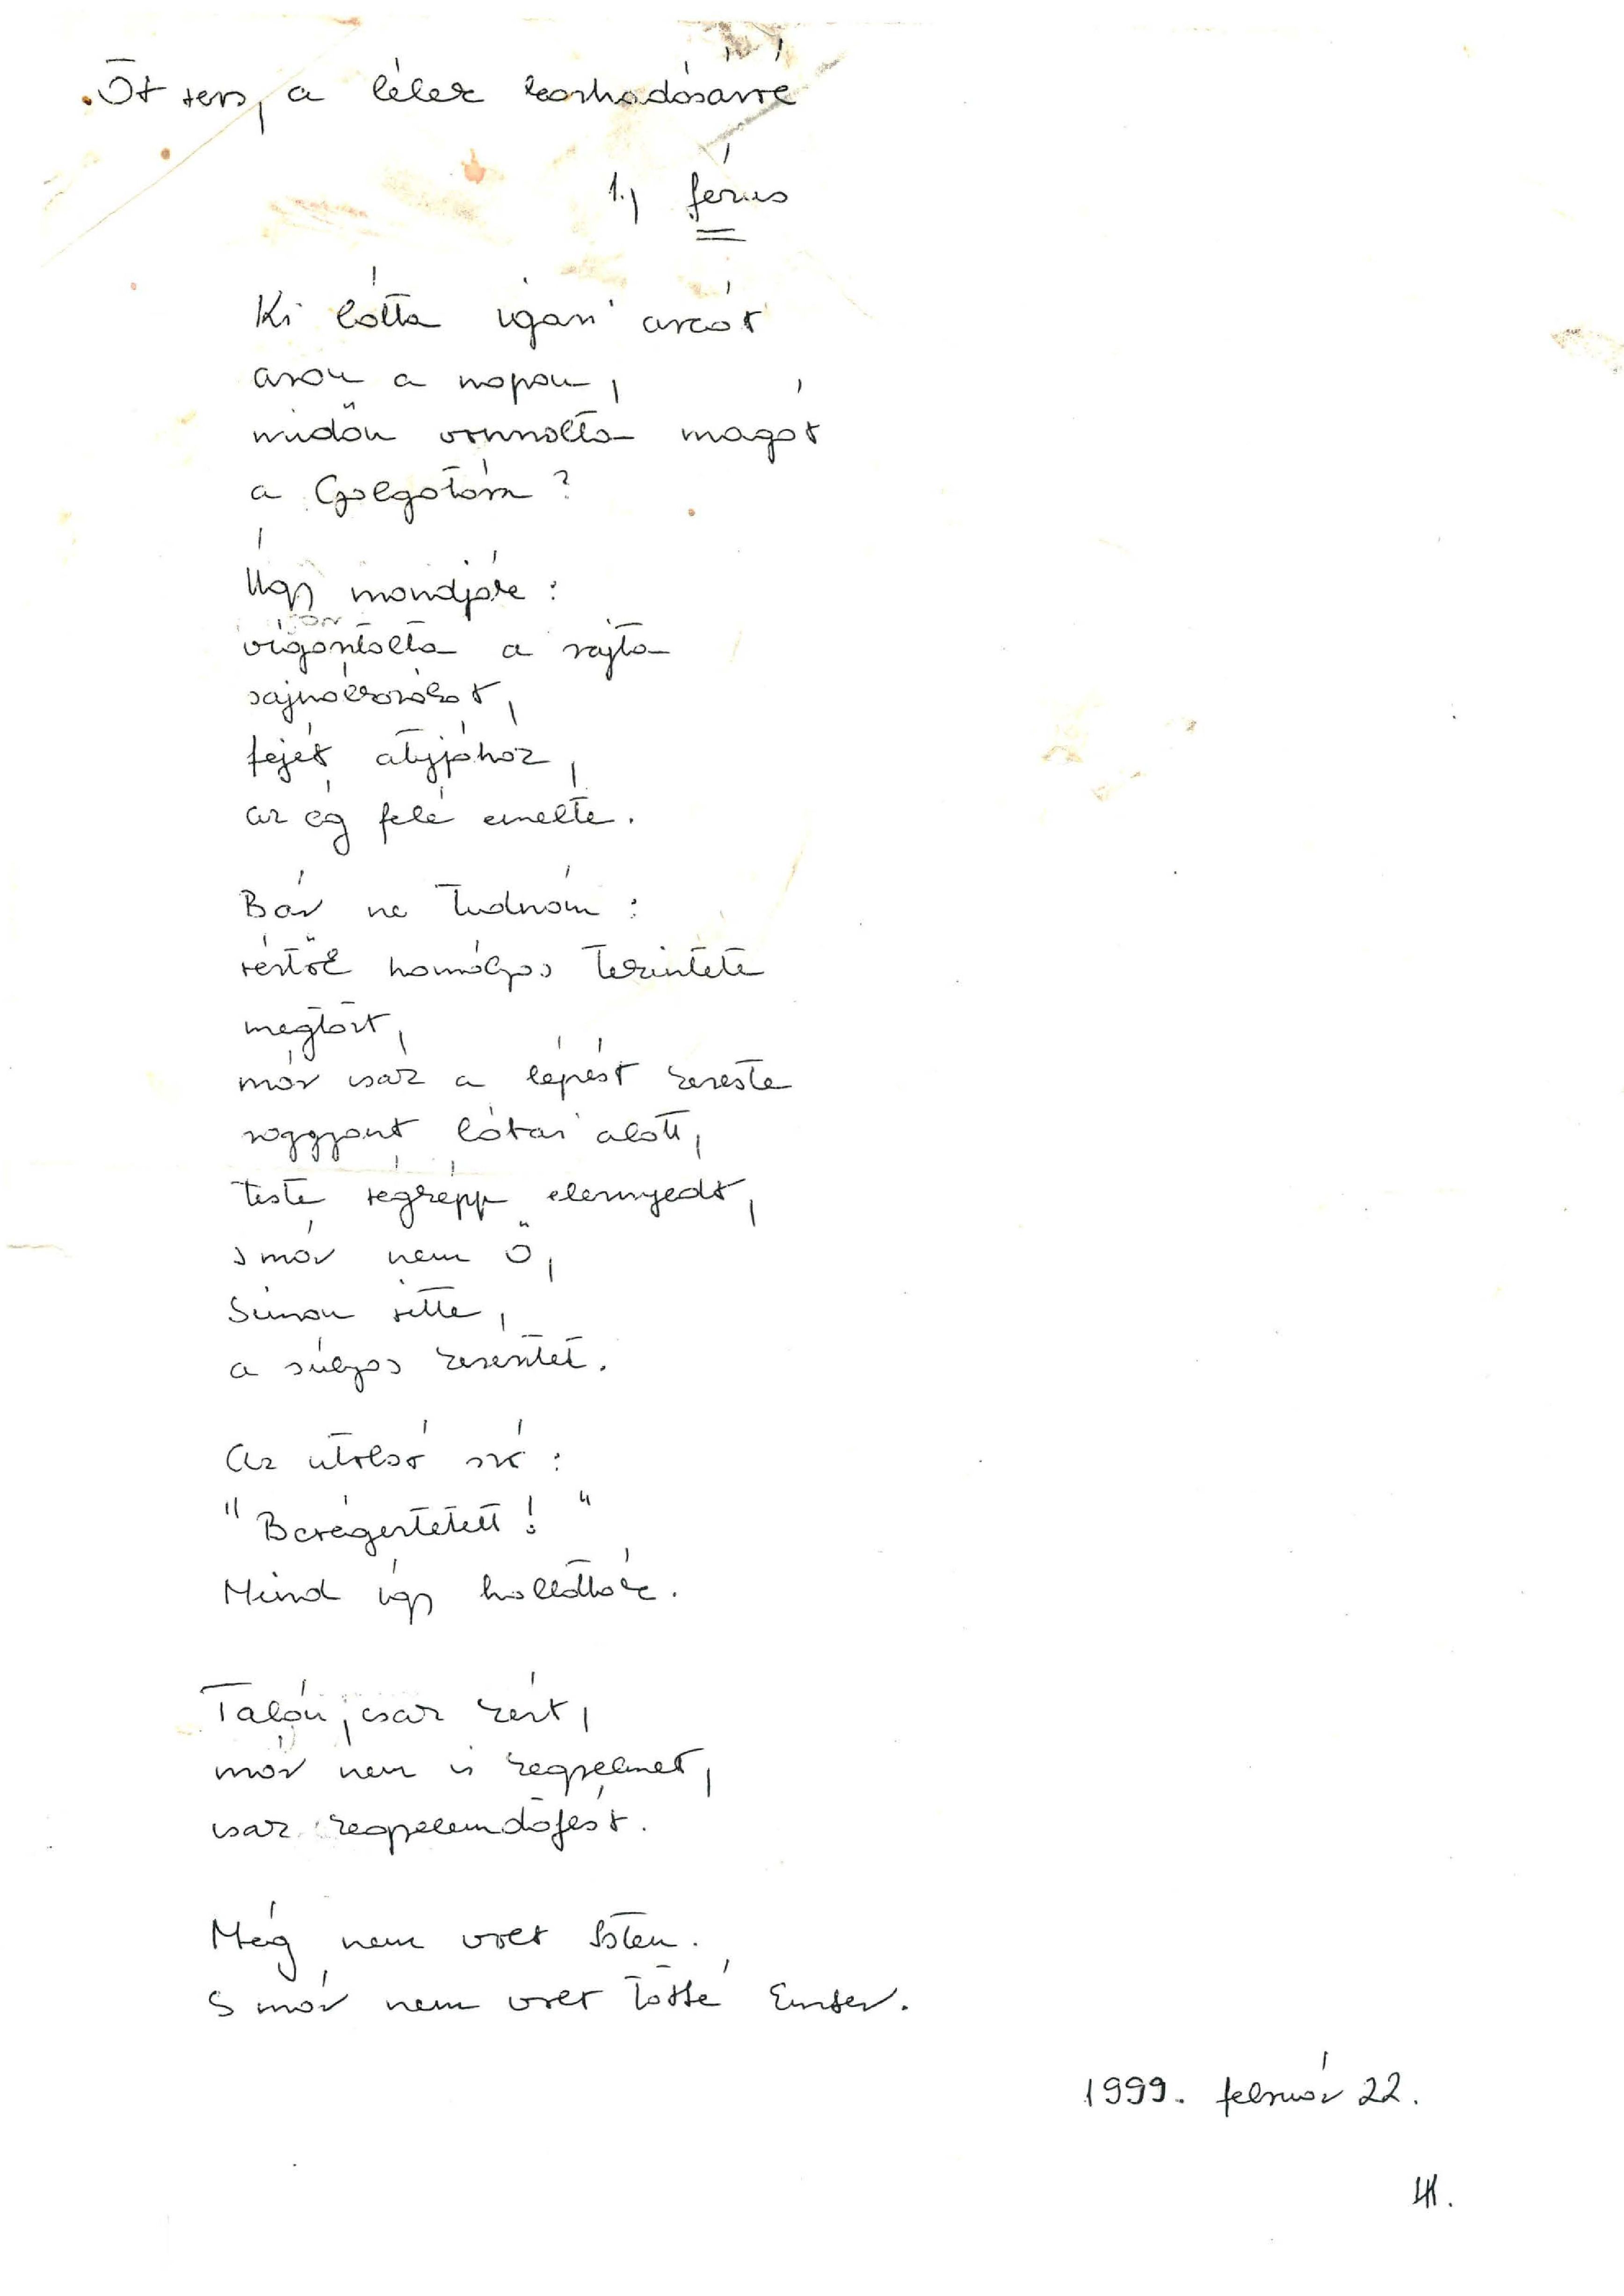 Öt vers, a lélek kárhozására
1., Jézus
Ki látta igazi arcát
azon a napon,
midőn vonszolta magát
a Golgotára?
Úgy mondják:
vigasztalta a rajta
sajnálkozókat,
fejét atyjához,
az ég felé emelte.
Bár ne tudnám:
vértől homályos tekintete
megtört,
már csak a lépést kereste
roggyant lábai alatt,
teste végképp elernyedt,
s már nem Ő,
Simon vitte,
a súlyos keresztet.
Az utolsó szó:
"Bevégeztetett!"
Mind úgy hallották.
Talán, csak kért,
már nem is kegyelmet,
csak kegyelemdöfést.
Még nem volt Isten.
S már nem volt többé Ember.
1999. február 22.